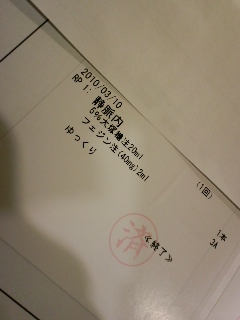 2010/03/10
RP 1: 静脈内 (1回)
5%大塚糖注20ml 1本
フェジン注(40mg)2ml 3A
ゆっくり
≪終了≫
済